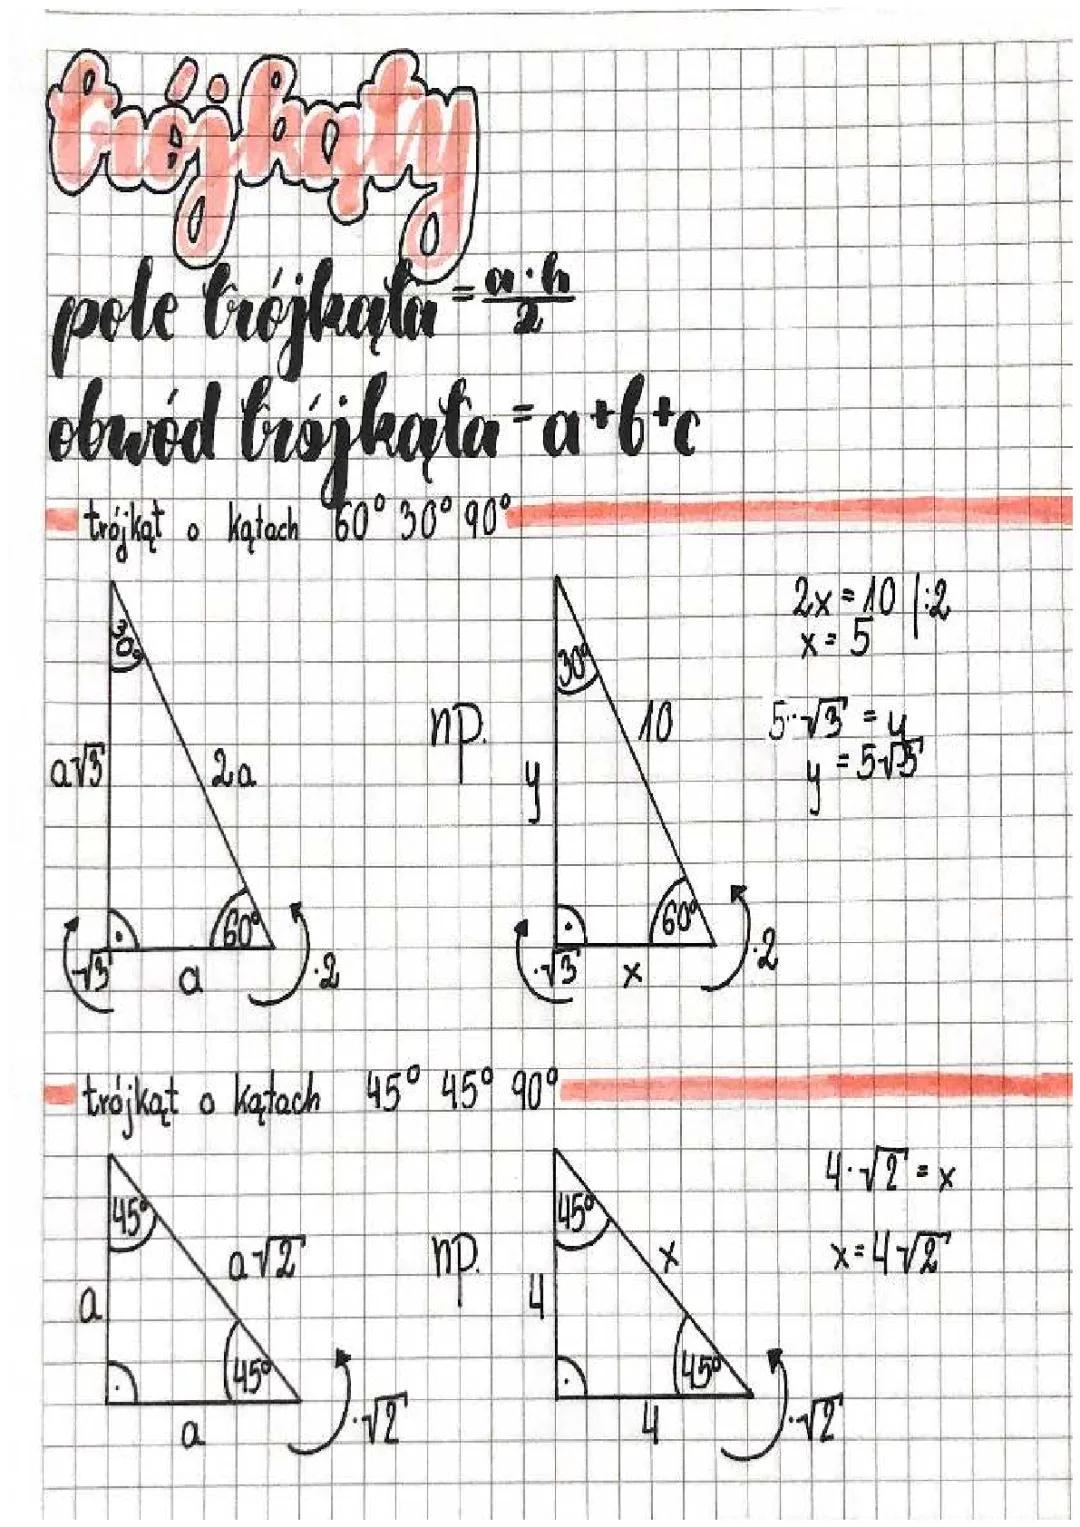 trójkąty
pole trójkąta = a·h/2
obwód trójkąta = a+b+c
trójkąt o kątach 60° 30° 90°
30°
a√3
2a
60°
·√3
a
·2
np.
30°
10
y
60°
·√3
x
·2
2x = 10 |:2
x = 5
5·√3 = y
y = 5√3
trójkąt o kątach 45° 45° 90°
45°
a√2
a
45°
a
·√2
np.
45°
x
4
45°
4
·√2
4·√2 = x
x = 4√2